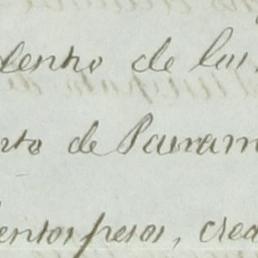 dentro de las
rto de Panam
entos pesos, crea